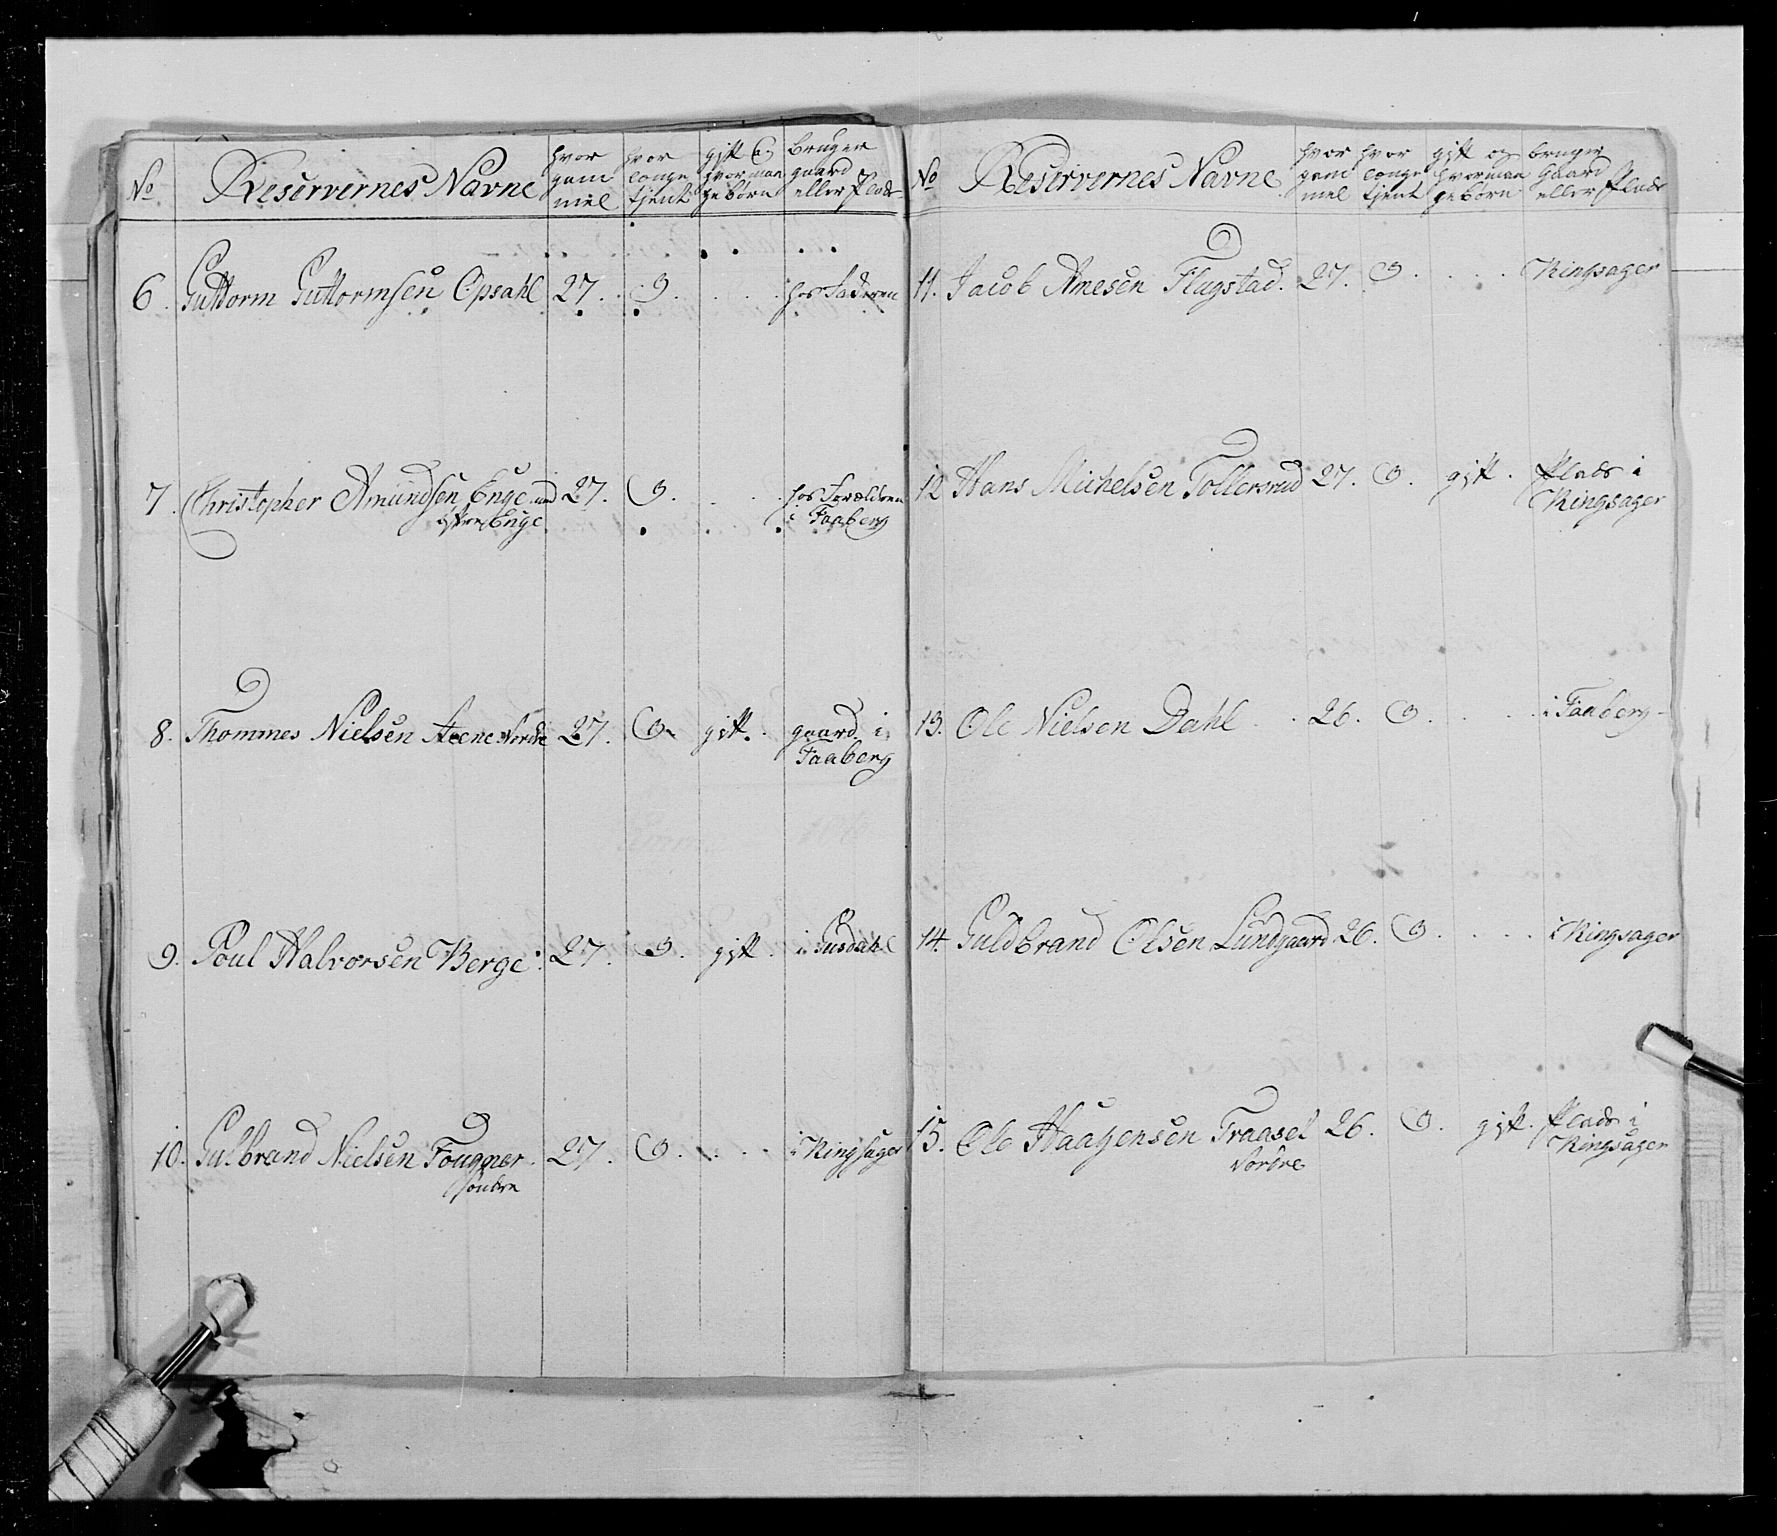 No Reservernes Navne hvor gam mel hvor længe tjent gift og hvor man ge børn bruger gaard eller Plads
6. Guttorm Guttormsen Opsahl 27. 9. hos Faderen
7. Christopher Amundsen Enge 27. 9. hos Forældrene
Enge i Faaberg
8. Thommes Nielsen Nordre 27. 9. gift. gaard i
Faaberg
9. Poul Halvorsen Berge. 27. 9. gift. i Gusdahl
10. Gulbrand Nielsen Fougner 27. 9. i Ringsager
søndre
No Reservernes Navne hvor gam mel hvor længe tjent gift og hvor man ge børn bruger Gaard eller Plads
11. Jacob Arnesen Flagstad. 27. 9. Ringsager
12 Hans Michelsen Tollersrud 27. 9. gift. Plads i
Ringsager
13. Ole Nielsen Dahl 26. 9. i Faaberg
14. Guldbrand Olsen Lundgaard 26. 9. i Ringsager
15. Ole Haagensen Traasel 26. 9. gift. Plads i
Nordre Ringsager